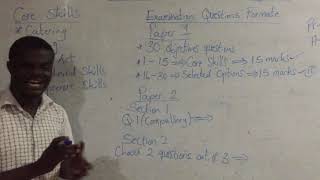 Core Skills
* Catering
Art
Skills
Skills
Examination Questions Formate
Paper 1
* 30 objectives questions
* 1-15 ⇒ Core Skills ⇒ 15 marks
* 16-30 ⇒ Selected Options ⇒ 15 marks
Paper 2
Section 1
Q1 (Compulsory) ⇒
Section 2
Choose 2 questions out of 3 ⇒